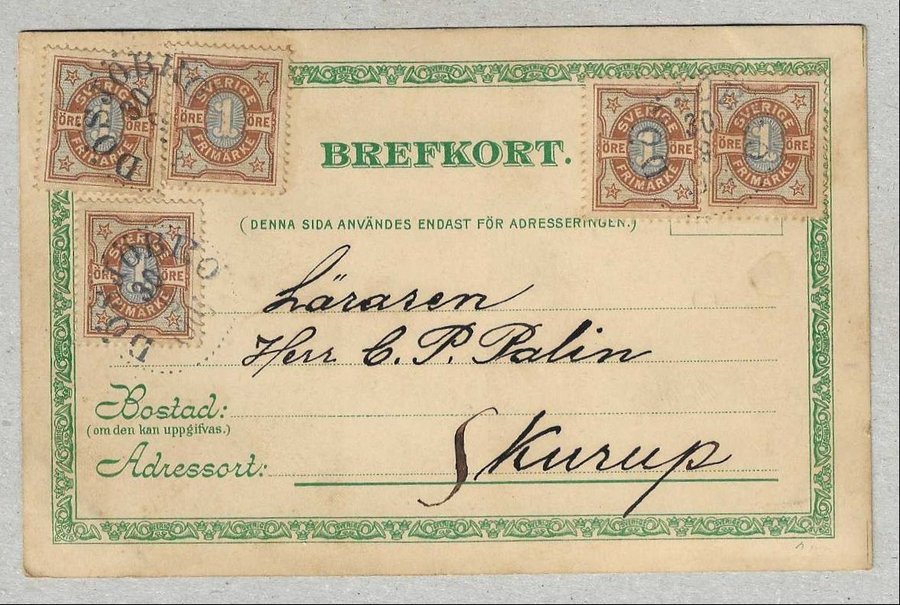 SVERIGE
1
ÖRE ÖRE
FRIMÄRKE
SVERIGE
1
ÖRE ÖRE
FRIMÄRKE
SVERIGE
1
ÖRE ÖRE
FRIMÄRKE
SVERIGE
1
ÖRE ÖRE
FRIMÄRKE
30
30
BREFKORT.
(DENNA SIDA ANVÄNDES ENDAST FÖR ADRESSERINGEN.)
SVERIGE
1
ÖRE ÖRE
FRIMÄRKE
30
Läraren
Herr C. P. Palin
Bostad:
(om den kan uppgifvas.)
Adressort:
Skurup